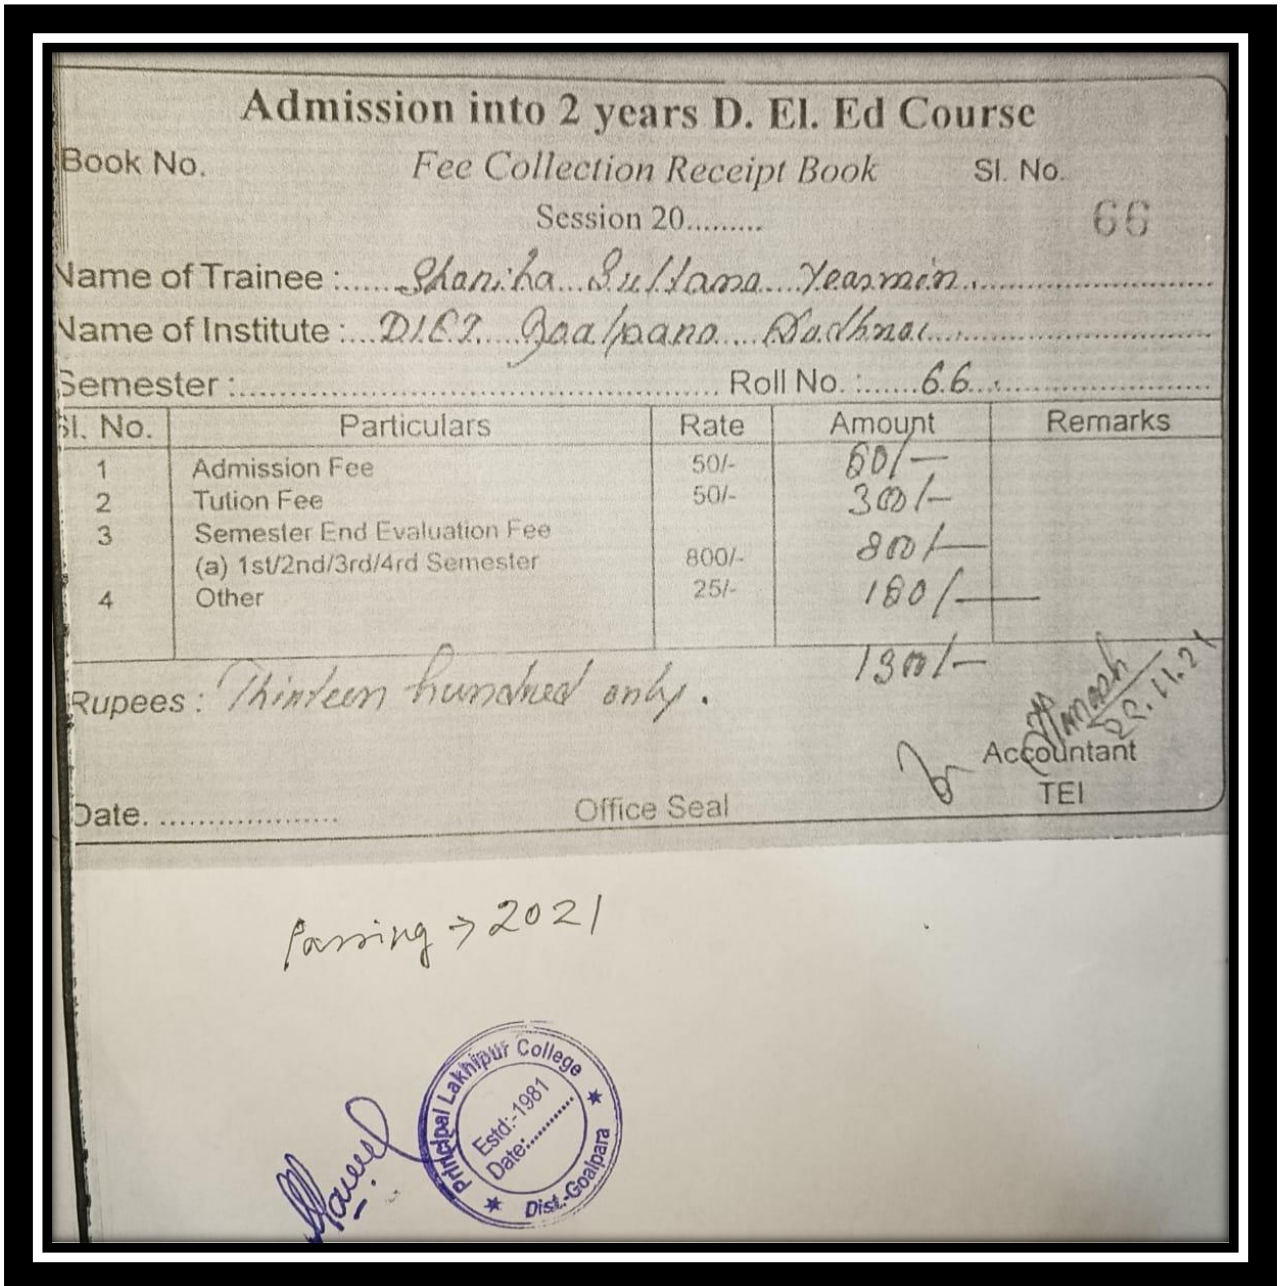 Admission into 2 years D. El. Ed Course
Book No. Fee Collection Receipt Book Sl. No.
Session 20.........
66
Name of Trainee : Shaniha Sultana Yeasmin
Name of Institute : D.I.E.T. Goalpara Dudhnoi
Semester : Roll No. : 66
Sl. No. Particulars Rate Amount Remarks
1 Admission Fee 50/-
2 Tution Fee 50/- 300/-
3 Semester End Evaluation Fee
(a) 1st/2nd/3rd/4rd Semester 800/- 800/-
4 Other 25/-
1300/-
Rupees : Thirteen hundred only.
22.11.21
Accountant
TEI
Date. ................... Office Seal
Passing → 2021
Principal Lakhipur College
Estd:-1981
Date:............
Dist.-Goalpara